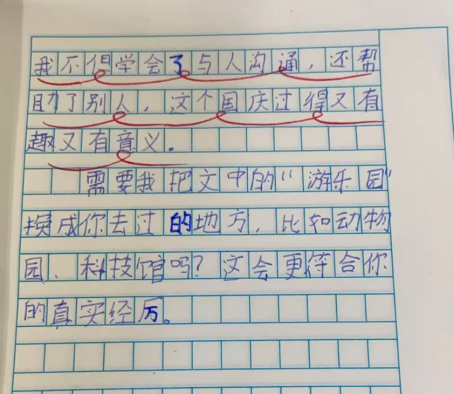 我不但学会了与人沟通，还帮
助了别人，这个国庆过得又有
趣又有意义。
需要我把文中的“游乐园”
换成你去过的地方，比如动物
园、科技馆吗？这会更符合你
的真实经历。